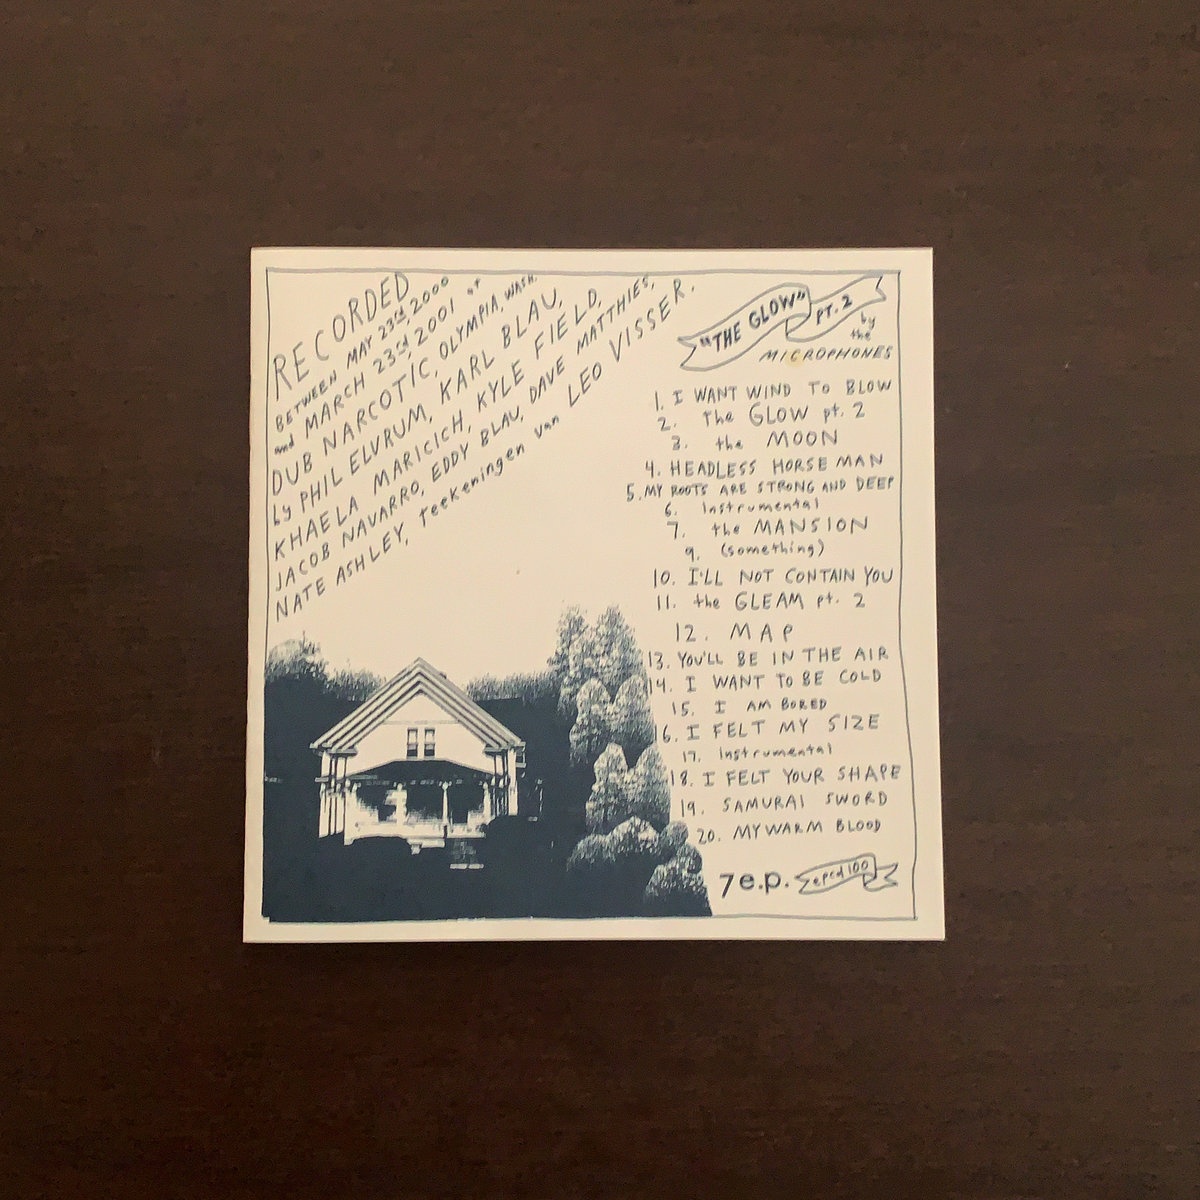 RECORDED
BETWEEN MAY 23rd, 2000
and MARCH 23rd, 2001 at
DUB NARCOTIC, OLYMPIA, WASH.
by PHIL ELVRUM, KARL BLAU,
KHAELA MARICICH, KYLE FIELD,
JACOB NAVARRO, EDDY BLAU, DAVE MATTHIES,
NATE ASHLEY, teekeningen van LEO VISSER.
"THE GLOW" PT. 2
by
the
MICROPHONES
1. I WANT WIND TO BLOW
2. the GLOW pt. 2
3. the MOON
4. HEADLESS HORSEMAN
5. MY ROOTS ARE STRONG AND DEEP
6. instrumental
7. the MANSION
9. (something)
10. I'LL NOT CONTAIN YOU
11. the GLEAM pt. 2
12. MAP
13. YOU'LL BE IN THE AIR
14. I WANT TO BE COLD
15. I AM BORED
16. I FELT MY SIZE
17. instrumental
18. I FELT YOUR SHAPE
19. SAMURAI SWORD
20. MY WARM BLOOD
7 e.p. epcd 100